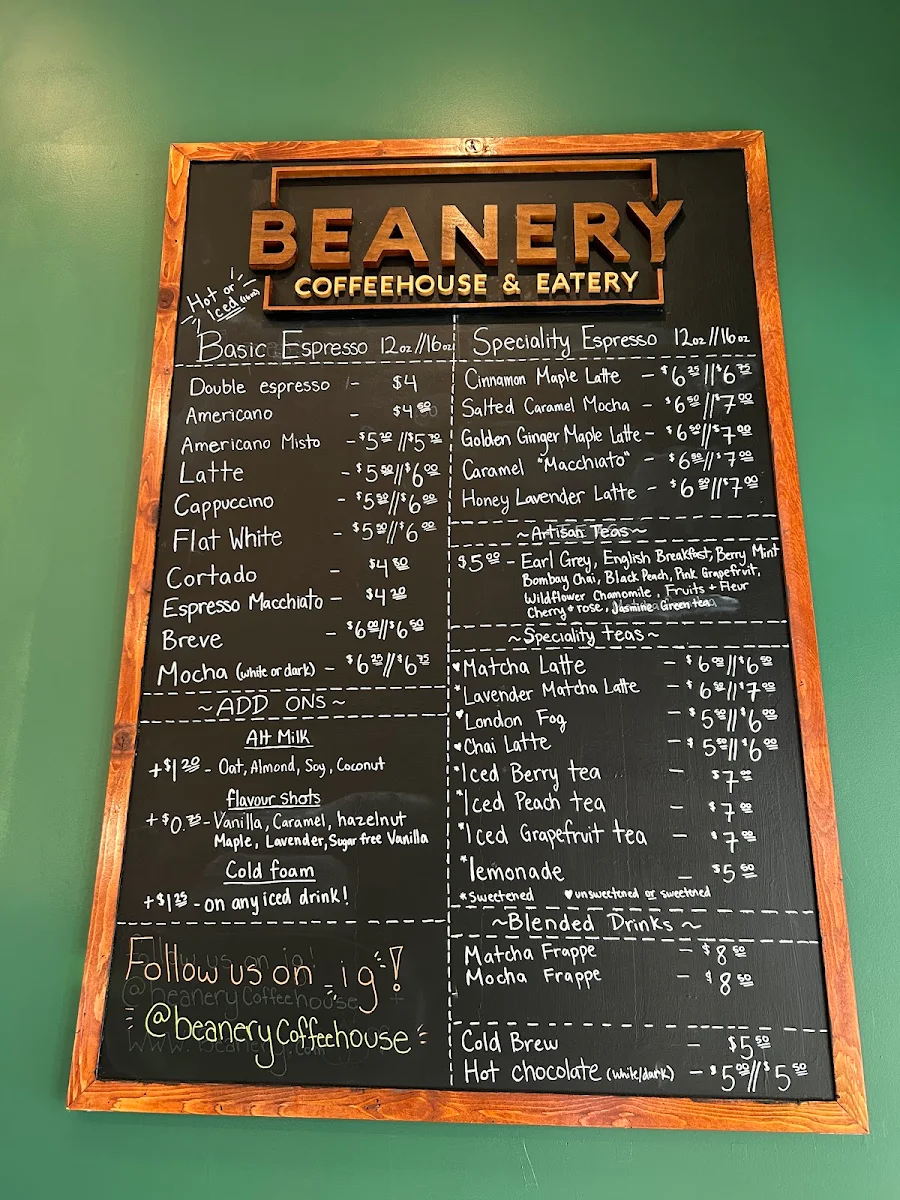 BEANERY
COFFEEHOUSE & EATERY
Hot or
Iced (16oz)
Basic Espresso 12oz//16oz
Double espresso - $4
Americano - $4.50
Americano Misto - $5.20//$5.70
Latte - $5.50//$6.00
Cappuccino - $5.50//$6.00
Flat White - $5.50//$6.00
Cortado - $4.50
Espresso Macchiato - $4.20
Breve - $6.00//$6.50
Mocha (white or dark) - $6.25//$6.75
~ADD ONS~
Alt Milk
+$1.20 - Oat, Almond, Soy, Coconut
flavour shots
+$0.75 - Vanilla, Caramel, hazelnut
Maple, Lavender, Sugar free Vanilla
Cold foam
+$1.25 - on any iced drink!
Follow us on ig!
@beanerycoffeehouse
Speciality Espresso 12oz//16oz
Cinnamon Maple Latte - $6.25//$6.75
Salted Caramel Mocha - $6.50//$7.00
Golden Ginger Maple Latte - $6.50//$7.00
Caramel "Macchiato" - $6.50//$7.00
Honey Lavender Latte - $6.50//$7.00
~Artisan Teas~
$5.00 - Earl Grey, English Breakfast, Berry Mint
Bombay Chai, Black Peach, Pink Grapefruit,
Wildflower Chamomile, Fruits + Fleur
Cherry + rose, Jasmine Green tea
~Speciality teas~
♥Matcha Latte - $6.00//$6.50
*Lavender Matcha Latte - $6.50//$7.00
*London Fog - $5.50//$6.00
♥Chai Latte - $5.50//$6.00
*Iced Berry tea - $7.00
*Iced Peach tea - $7.00
*Iced Grapefruit tea - $7.00
*lemonade - $5.50
*sweetened ♥unsweetened or sweetened
~Blended Drinks~
Matcha Frappe - $8.50
Mocha Frappe - $8.50
Cold Brew - $5.50
Hot chocolate (white/dark) - $5.00//$5.50